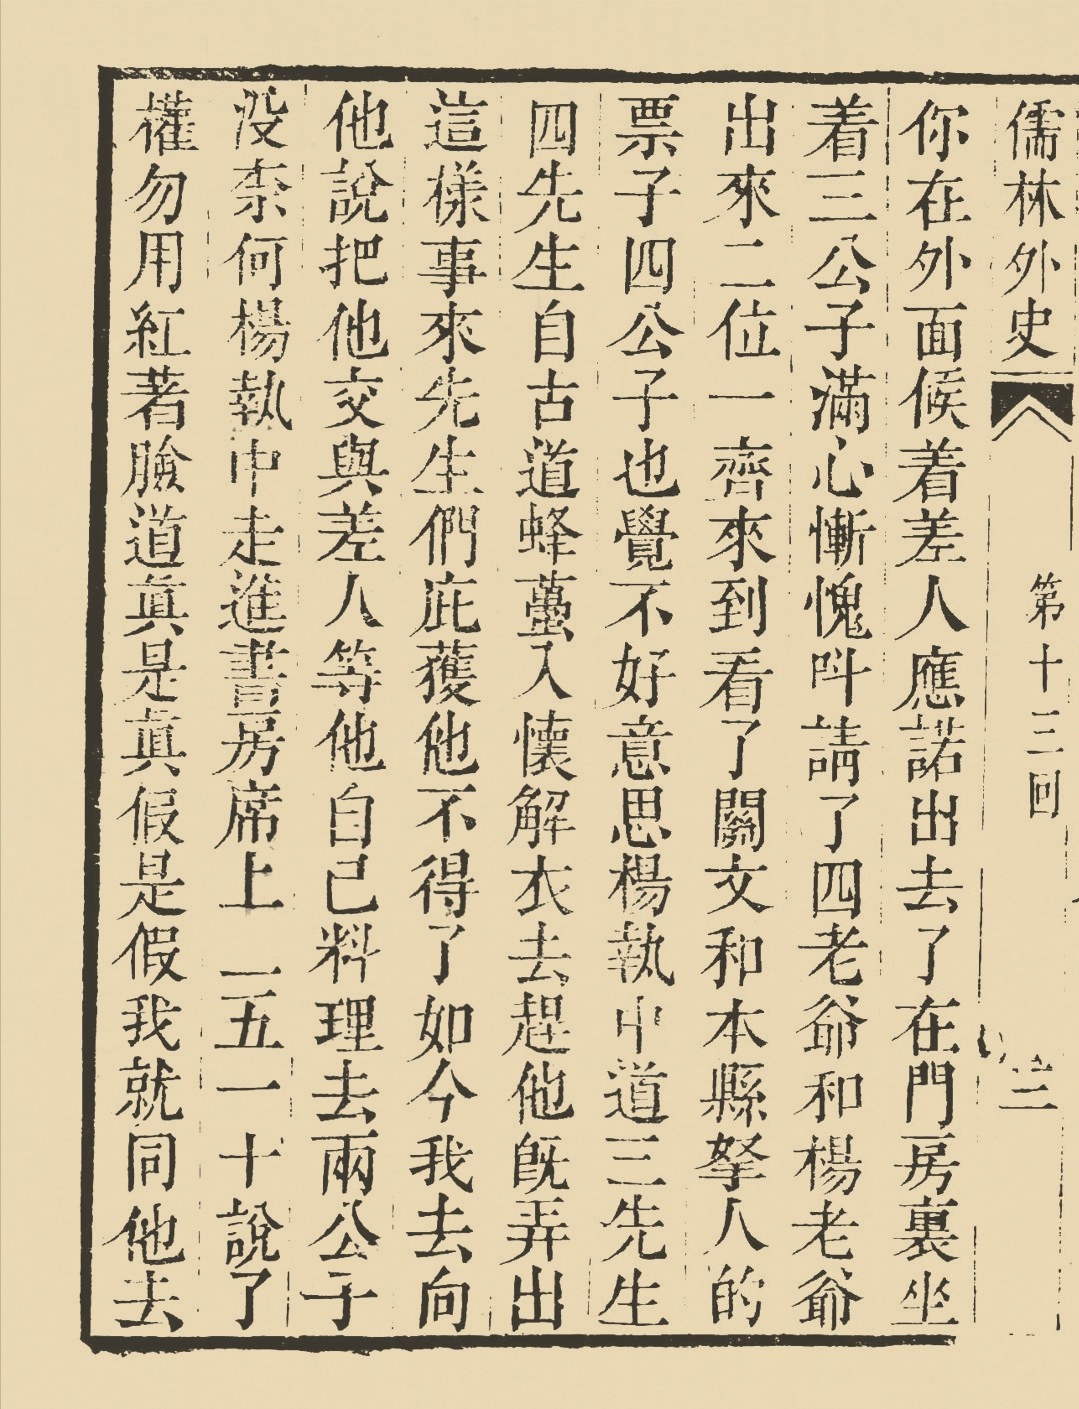 儒林外史 第十三回 三
你在外面候着差人應諾出去了在門房裏坐
着三公子滿心慚愧呌請了四老爺和楊老爺
出來二位一齊來到看了關文和本縣拏人的
票子四公子也覺不好意思楊執中道三先生
四先生自古道蜂蠆入懷解衣去趕他旣弄出
這樣事來先生們庇獲他不得了如今我去向
他說把他交與差人等他自己料理去兩公子
没柰何楊執中走進書房席上一五一十說了
權勿用紅著臉道真是真假是假我就同他去